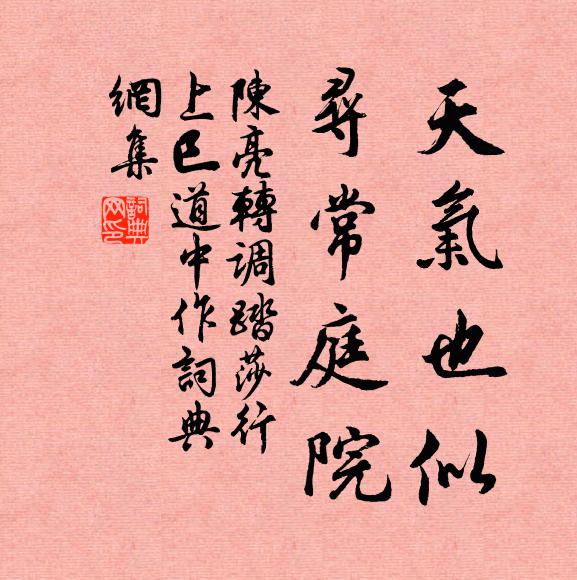 天氣也似
尋常庭院
陳亮轉調踏莎行
上巳道中作詞典
網集
詞典
网印